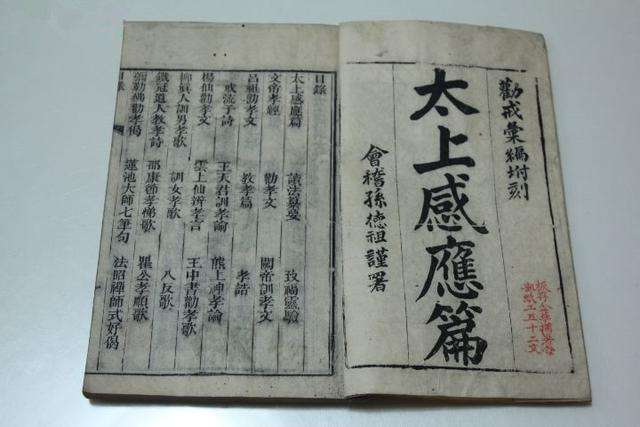 勸戒彙編坿刻
太上感應篇
會稽孫德祖謹署
目錄
太上感應篇 讀法纂要 致福靈驗
文帝孝經 勸孝文 關帝訓孝文
呂祖勸孝文 教孝篇 孝誥
戒流子詩 王天君訓孝論 熊上神孝論
楊仙勸孝文 雲上仙辨孝言 王中書勸孝歌
柳真人訓男孝歌 訓女孝歌 八反歌
鐵冠道人教孝詩 邵康節孝悌歌 瞿公孝順歌
彌勒佛勸孝偈 蓮池大師七筆勾 法昭禪師式好偈
目錄